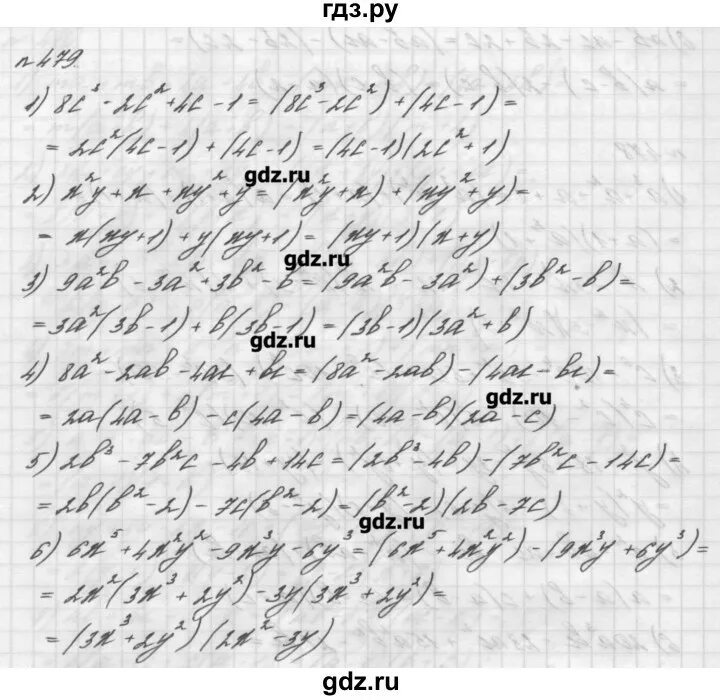 гдз.ру
n 479.
1) 8c³ - 2c² + 4c - 1 = (8c³ - 2c²) + (4c - 1) =
= 2c²(4c - 1) + (4c - 1) = (4c - 1)(2c² + 1)
gdz.ru
2) x²y + x + xy² + y = (x²y + x) + (xy² + y) =
= x(xy + 1) + y(xy + 1) = (xy + 1)(x + y)
gdz.ru
3) 9a²b - 3a² + 3b² - b = (9a²b - 3a²) + (3b² - b) =
= 3a²(3b - 1) + b(3b - 1) = (3b - 1)(3a² + b)
gdz.ru
4) 8a² - 2ab - 4ac + bc = (8a² - 2ab) - (4ac - bc) =
gdz.ru
= 2a(4a - b) - c(4a - b) = (4a - b)(2a - c)
5) 2b³ - 7b²c - 4b + 14c = (2b³ - 4b) - (7b²c - 14c) =
= 2b(b² - 2) - 7c(b² - 2) = (b² - 2)(2b - 7c)
gdz.ru
6) 6x⁵ + 4x²y² - 9x³y - 6y³ = (6x⁵ + 4x²y²) - (9x³y + 6y³) =
= 2x²(3x³ + 2y²) - 3y(3x³ + 2y²) =
= (3x³ + 2y²)(2x² - 3y)
gdz.ru